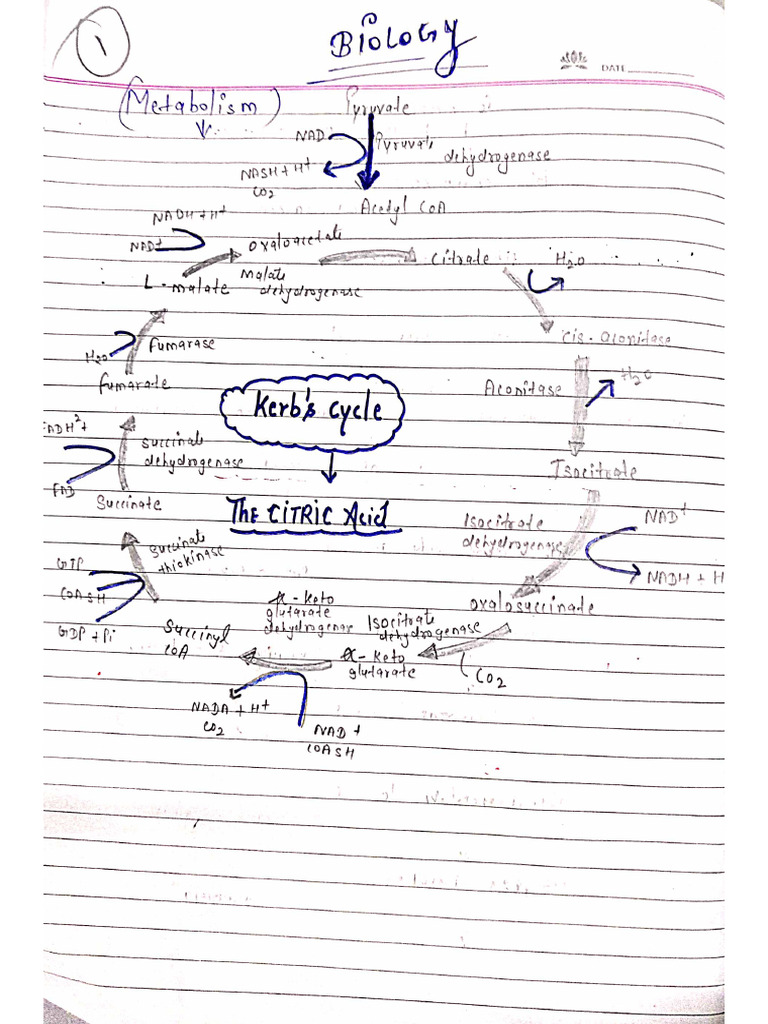 1
Biology
DATE
(Metabolism)
Pyruvate
NAD
Pyruvate
dehydrogenase
NASH + H+
CO2
Acetyl CoA
NADH + H+
NAD+
Oxaloacetate
Citrate
H2O
L-malate
Malate
dehydrogenase
Cis-aconitase
H2O
Fumarase
Fumarate
Aconitase
H2O
Kerb's cycle
FADH2+
FAD
Succinate
dehydrogenase
Isocitrate
Succinate
THE CITRIC Acid
Isocitrate
dehydrogenase
NAD+
NADH + H
GTP
COASH
GDP + Pi
Succinate
thiokinase
Oxalosuccinate
α-keto
glutarate
dehydrogenase
Isocitrate
dehydrogenase
Succinyl
COA
α-keto
glutarate
CO2
NADA + H+
CO2
NAD +
COASH